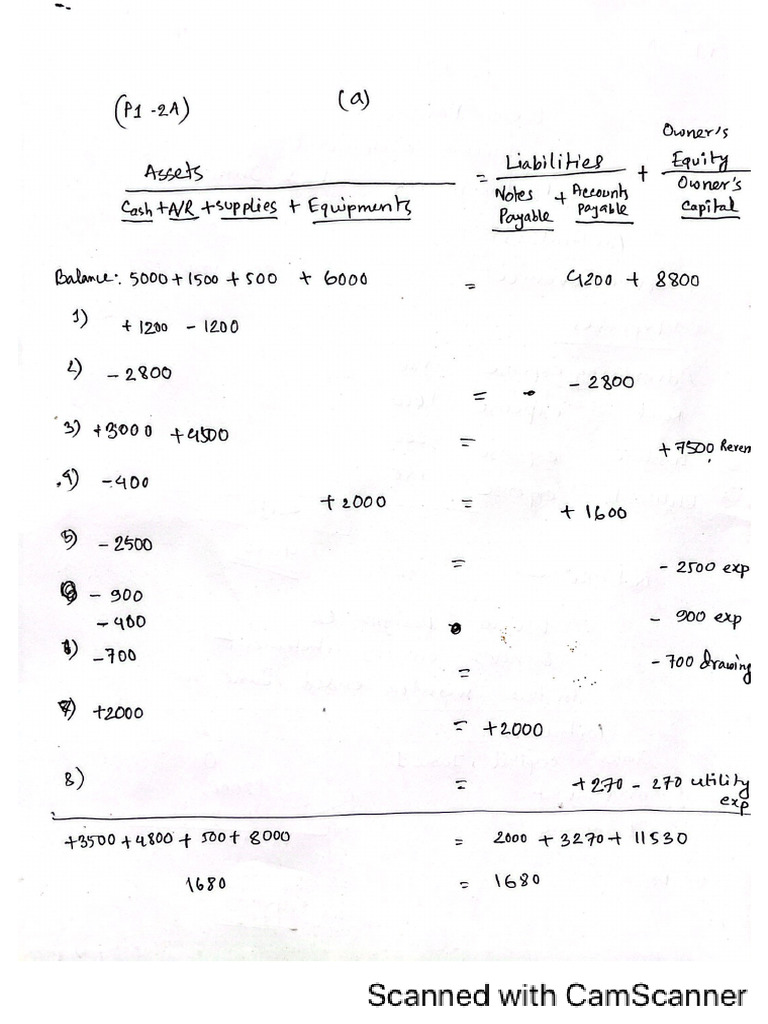 (P1-2A) (a)
Owner's
Assets = Liabilities + Equity
Cash + A/R + Supplies + Equipments Notes Payable + Accounts Payable Owner's Capital
Balance: 5000 + 1500 + 500 + 6000 = 4200 + 8800
1) +1200 - 1200
2) - 2800 = - 2800
3) +3000 +4500 = +7500 Reven
4) -400 +2000 = +1600
5) - 2500 = - 2500 exp
- 900 - 900 exp
- 400
6) -700 = -700 drawing
7) +2000 = +2000
8) = +270 - 270 utility exp
+3500 + 4800 + 500 + 8000 = 2000 + 3270 + 11530
1680 = 1680
Scanned with CamScanner